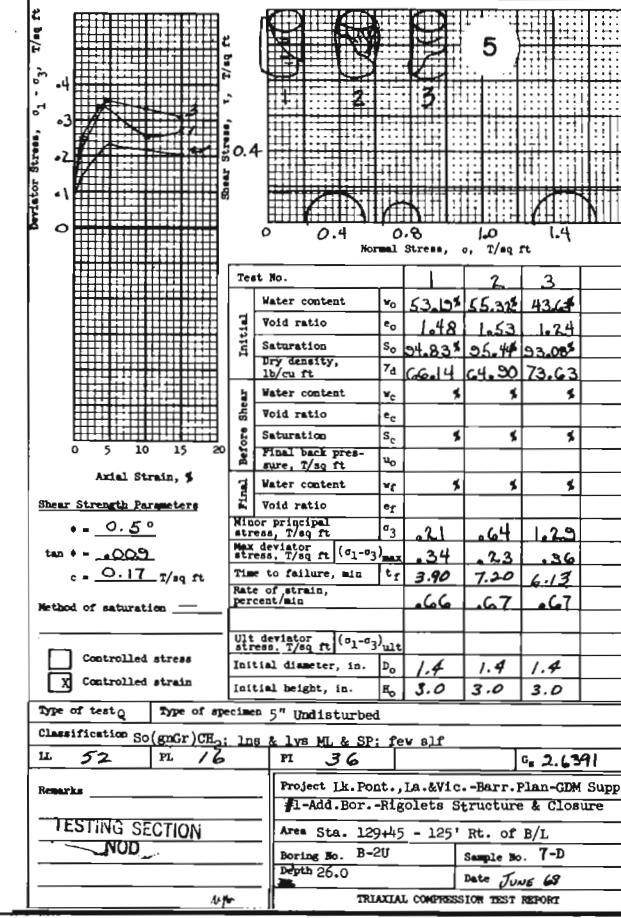 Deviator Stress, σ1 - σ3, T/sq ft
.4
.3
.2
.1
0
0 5 10 15 20
Axial Strain, %
Shear Stress, τ, T/sq ft
0.4
1 2 3
5
0.4 0.8 1.0 1.4
Normal Stress, σ, T/sq ft
Shear Strength Parameters
φ = 0.5°
tan φ = .009
c = 0.17 T/sq ft
Method of saturation —
Controlled stress
X Controlled strain
Test No. 1 2 3
Initial
Water content w₀ 53.19% 55.32% 43.67%
Void ratio e₀ 1.48 1.53 1.24
Saturation S₀ 94.83% 95.44% 93.08%
Dry density, lb/cu ft γd 66.14 64.90 73.63
Before Shear
Water content wc % % %
Void ratio ec
Saturation Sc % % %
Final back pressure, T/sq ft u₀
Final
Water content wf % % %
Void ratio ef
Minor principal stress, T/sq ft σ3 .21 .64 1.29
Max deviator stress, T/sq ft (σ1-σ3)max .34 .23 .36
Time to failure, min tf 3.90 7.20 6.13
Rate of strain, percent/min .66 .67 .67
Ult deviator stress, T/sq ft (σ1-σ3)ult
Initial diameter, in. D₀ 1.4 1.4 1.4
Initial height, in. H₀ 3.0 3.0 3.0
Type of test Q Type of specimen 5" Undisturbed
Classification So(gnGr)CH2; lns & lys ML & SP; few slf
LL 52 PL 16 PI 36 Gs 2.6391
Remarks
TESTING SECTION
NOD
Project Lk.Pont.,La.&Vic.-Barr.Plan-GDM Supp
#1-Add.Bor.-Rigolets Structure & Closure
Area Sta. 129+45 - 125' Rt. of B/L
Boring No. B-2U Sample No. 7-D
Depth 26.0 Date JUNE 68
TRIAXIAL COMPRESSION TEST REPORT